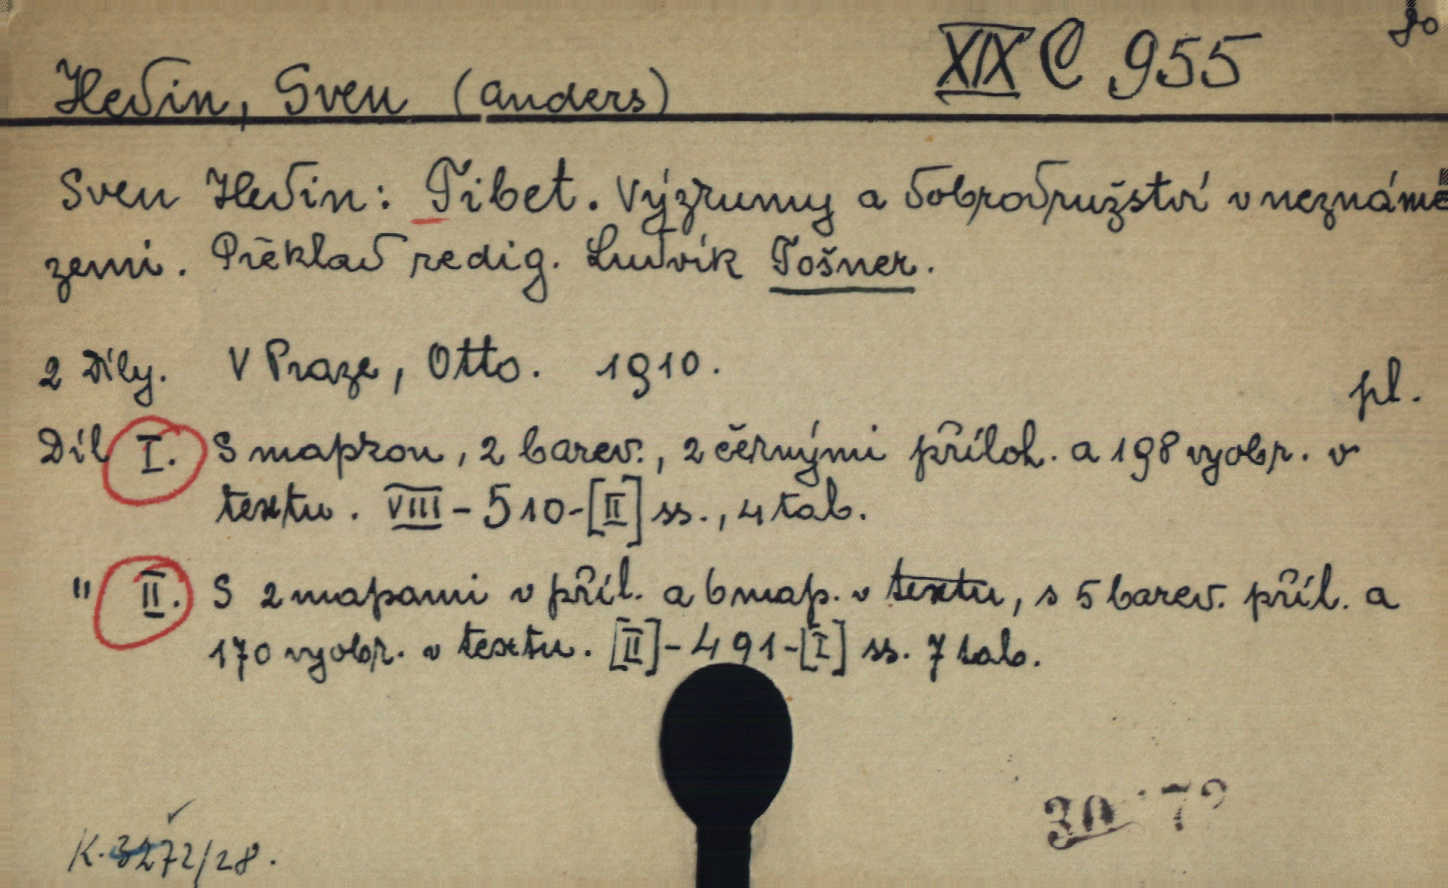 XIX C 955
Hedin, Sven (Anders)
Sven Hedin: Tibet. Výzkumy a dobrodružství v neznámé
zemi. Překlad redig. Ludvík Tošner.
2 Díly. V Praze, Otto. 1910.
pl.
Díl I. S mapkou, 2 barev., 2 černými příloh. a 198 vyobr. v
textu. VIII - 510 - [II] ss., 4 tab.
" II. S 2 mapami v příl. a 6 map. v textu, s 5 barev. příl. a
170 vyobr. v textu. [II] - 491 - [I] ss. 7 tab.
K. 3272/28.